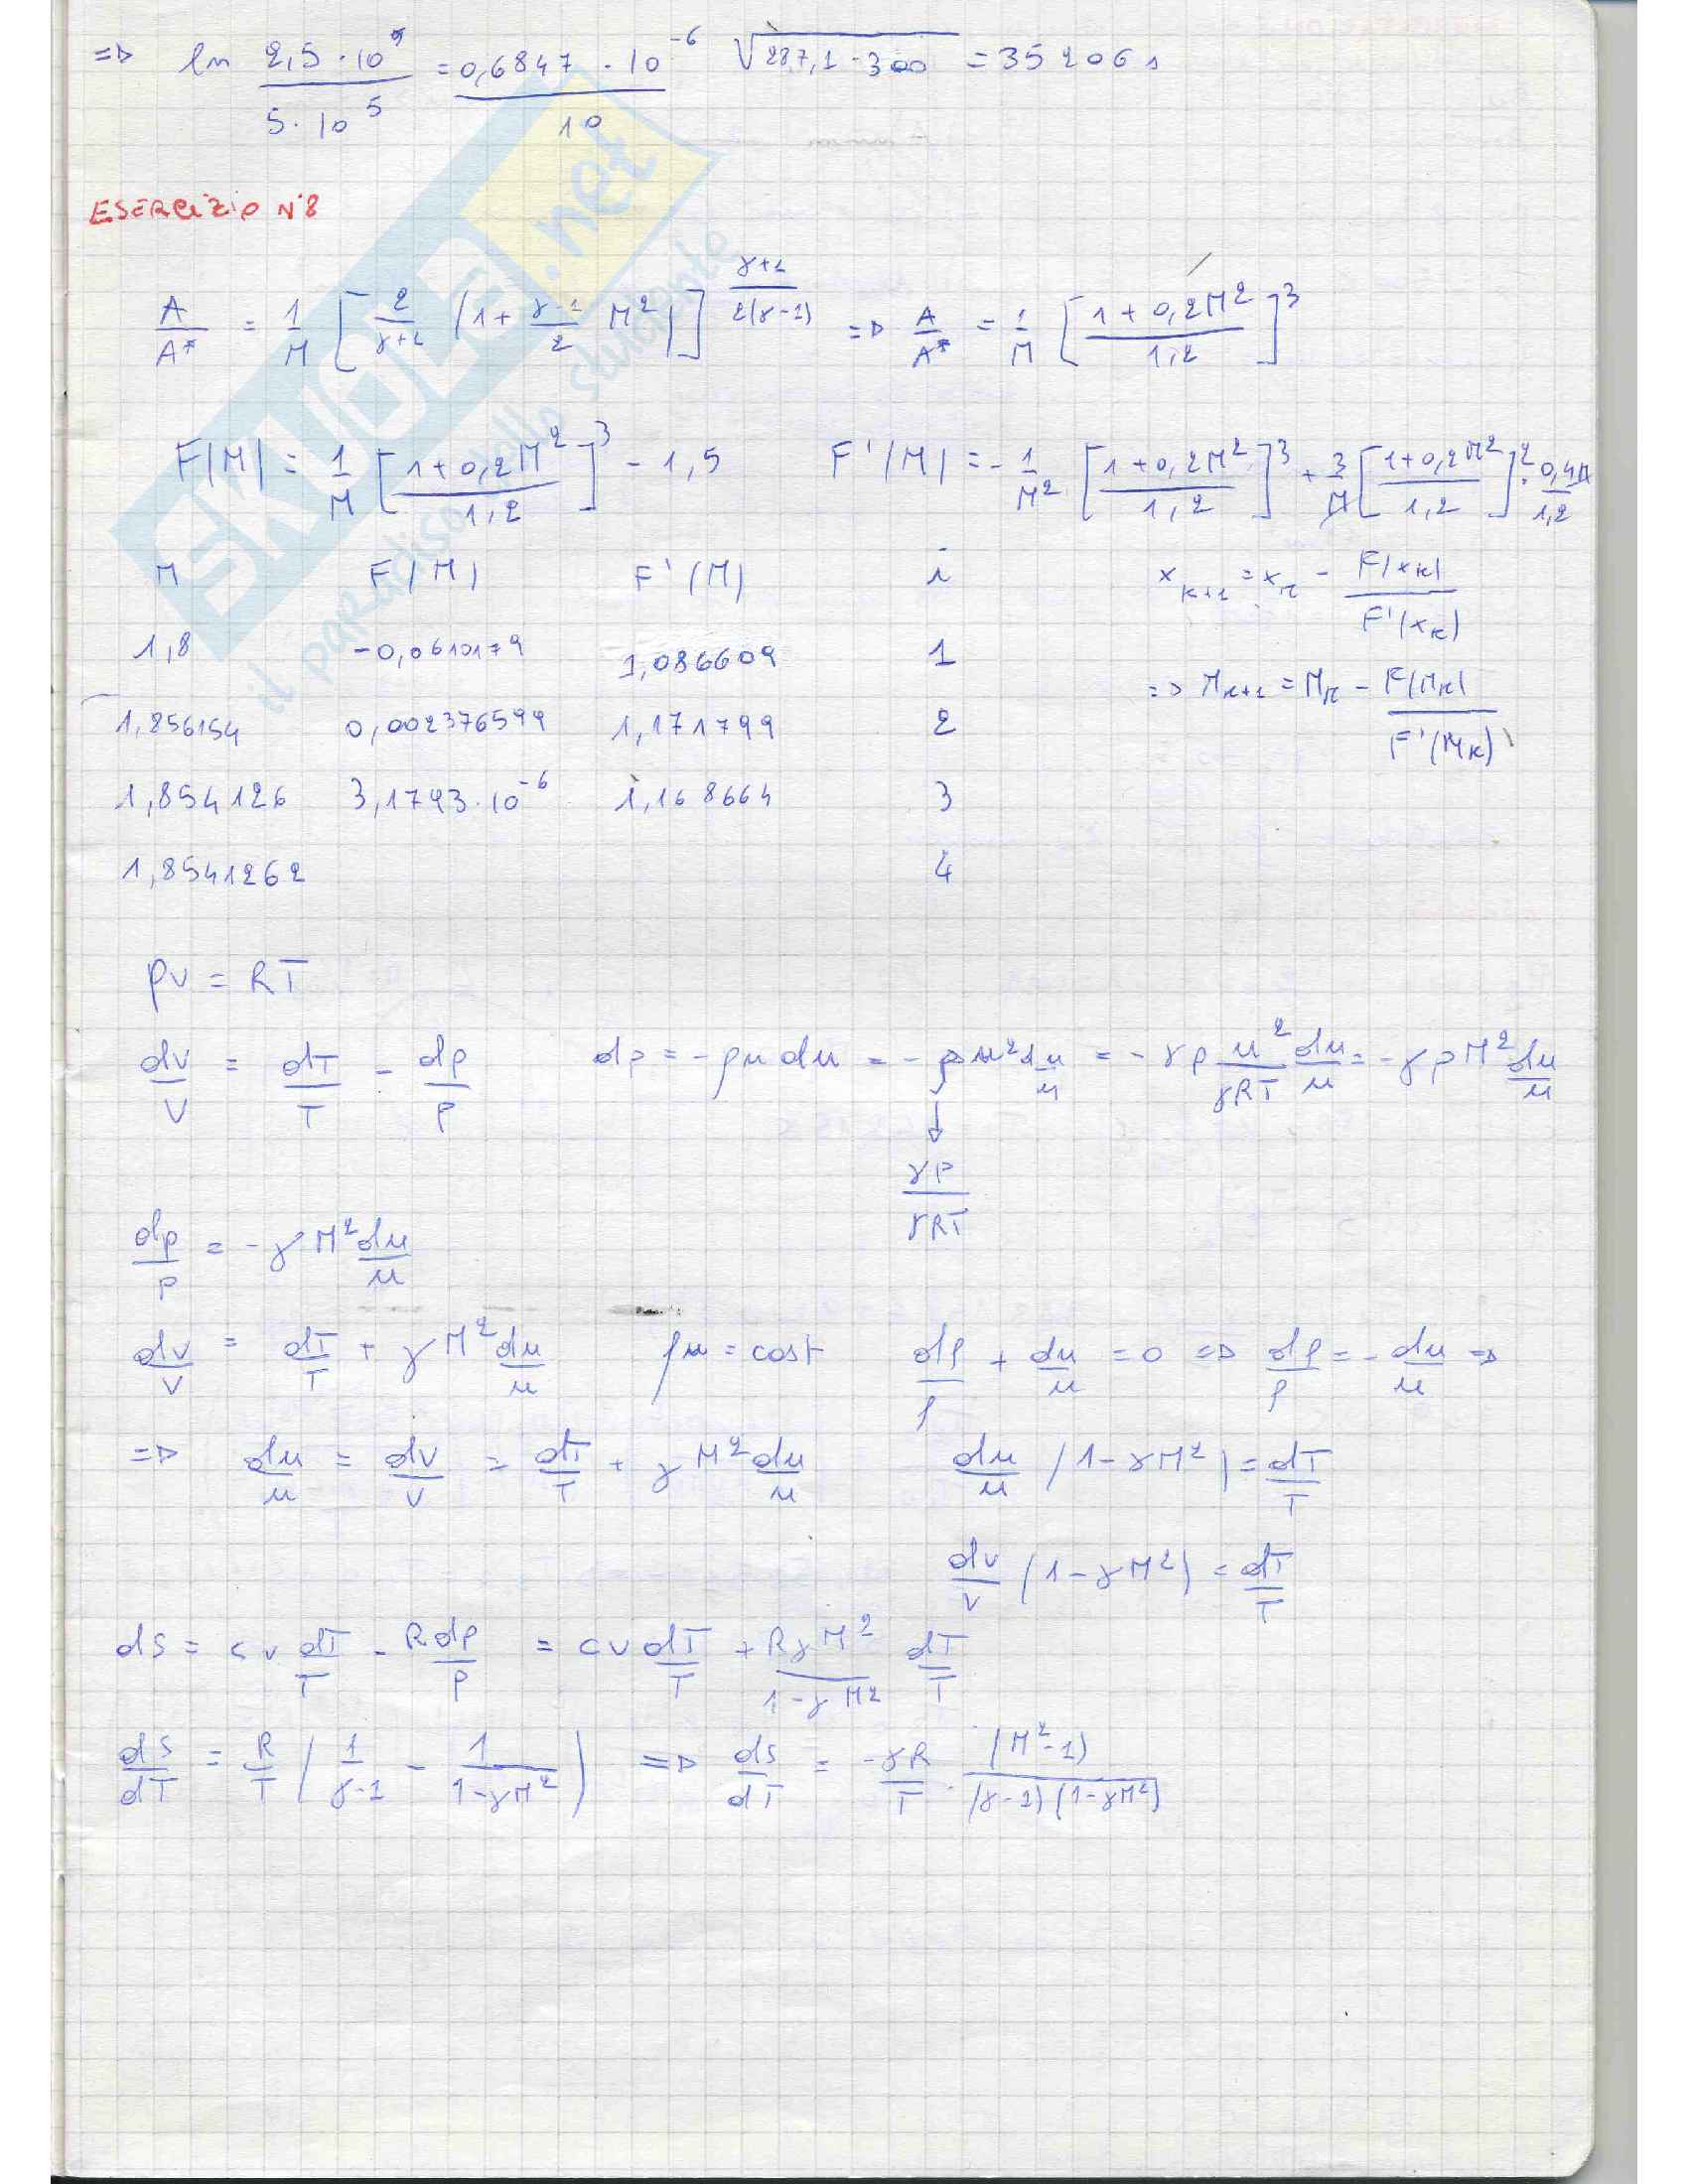 => ln 2,5·10⁵ / 5·10⁵ = 0,6847·10⁻⁶ / 10 √(287,1·300) = 35206 s
ESERCIZIO N°8
A/A* = 1/M [2/(γ+1) (1 + (γ-1)/2 M²)]^((γ+1)/(2(γ-1))) => A/A* = 1/M [(1+0,2M²)/1,2]³
F(M) = 1/M [(1+0,2M²)/1,2]³ - 1,5 F'(M) = -1/M² [(1+0,2M²)/1,2]³ + 3/M [(1+0,2M²)/1,2]² · 0,4M/1,2
M F(M) F'(M) i x_{k+1} = x_k - F(x_k)/F'(x_k)
1,8 -0,0610179 1,086609 1
=> M_{k+1} = M_k - F(M_k)/F'(M_k)
1,856154 0,002376599 1,171799 2
1,854126 3,1793·10⁻⁶ 1,168664 3
1,8541262 4
pv = RT
dv/v = dT/T - dp/p dp = -ρu du = -ρu² du/u = -γp u²/γRT du/u = -γpM² du/u
↓
γp/γRT
dp/p = -γM² du/u
dv/v = dT/T + γM² du/u ρu = cost dρ/ρ + du/u = 0 => dρ/ρ = -du/u =>
=> du/u = dv/v = dT/T + γM² du/u du/u (1-γM²) = dT/T
dv/v (1-γM²) = dT/T
ds = cv dT/T - R dp/p = cv dT/T + RγM²/(1-γM²) dT/T
ds/dT = R/T (1/(γ-1) - 1/(1-γM²)) => ds/dT = -γR/T · (M²-1)/((γ-1)(1-γM²))
SKUOLA.net
il paradiso dello studente